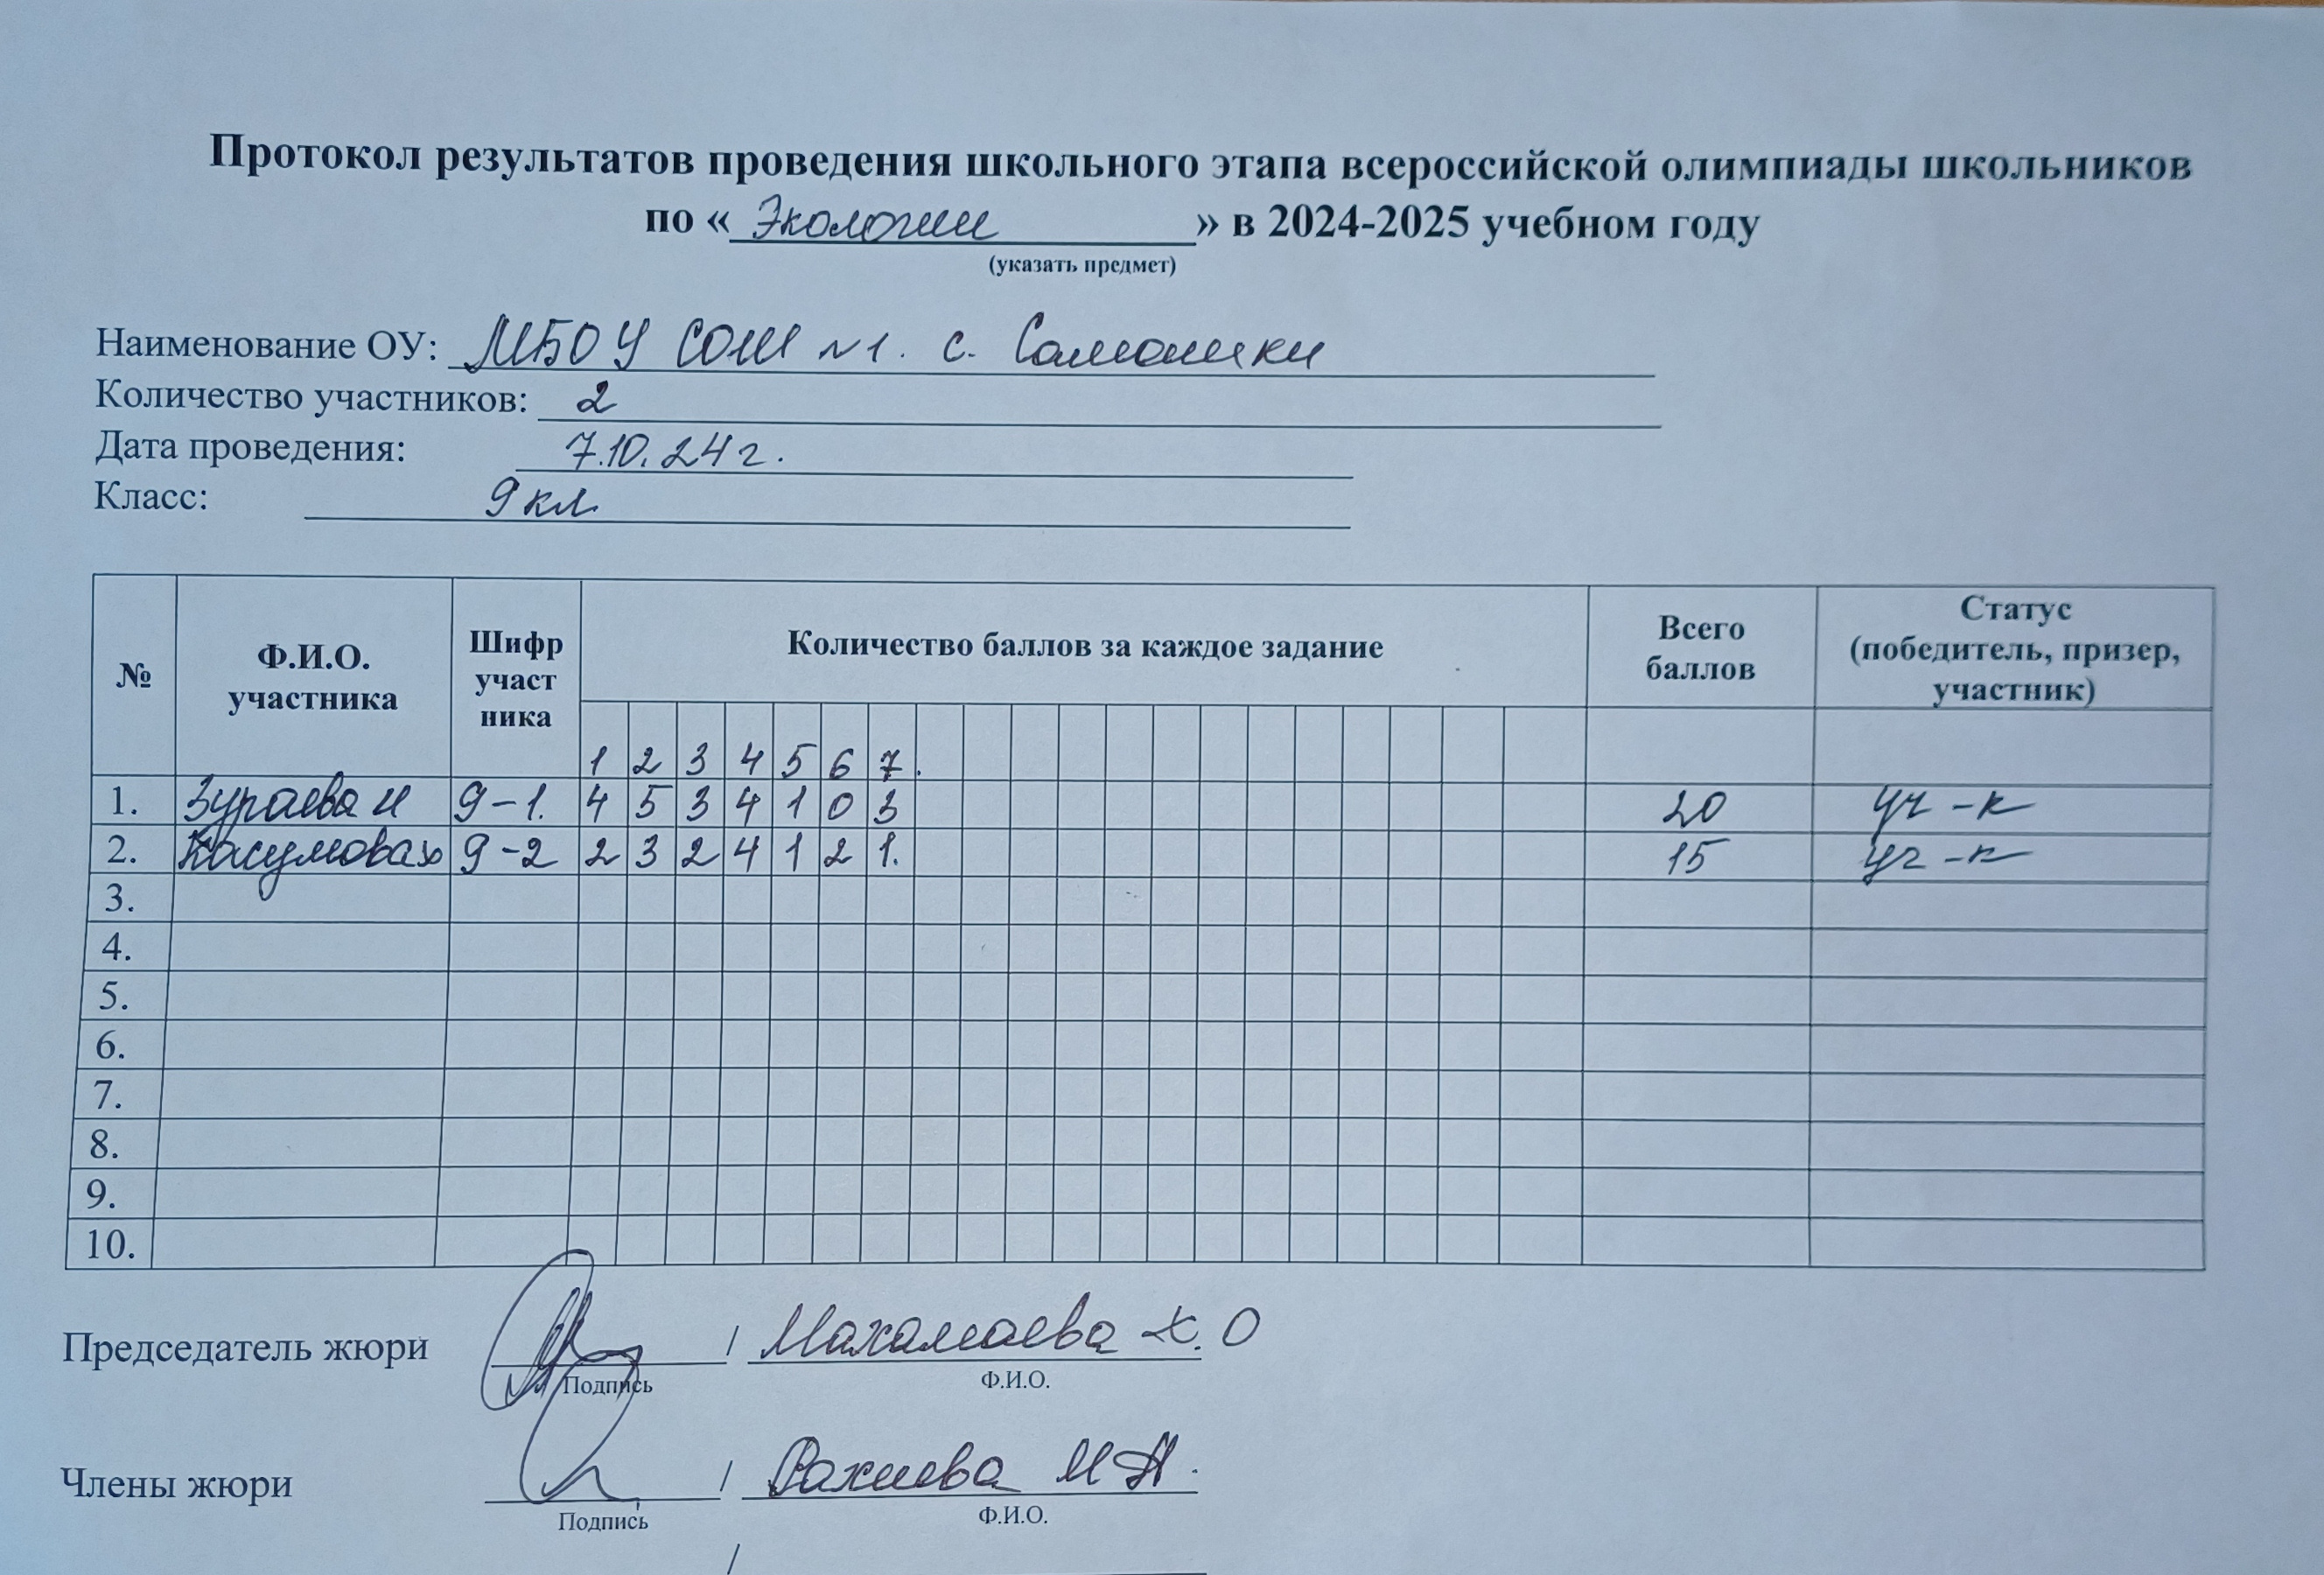 Протокол результатов проведения школьного этапа всероссийской олимпиады школьников
по « Экологии » в 2024-2025 учебном году
(указать предмет)
Наименование ОУ: МБОУ СОШ №1. с. Самашки
Количество участников: 2
Дата проведения: 7.10.24г.
Класс: 9 кл
№ Ф.И.О. участника Шифр участ ника Количество баллов за каждое задание Всего баллов Статус (победитель, призер, участник)
1 2 3 4 5 6 7.
1. Зураева И 9-1. 4 5 3 4 1 0 3 20 уч-к
2. Касумова Х 9-2 2 3 2 4 1 2 1. 15 уч-к
3.
4.
5.
6.
7.
8.
9.
10.
Председатель жюри / Махамаева Х. О
Подпись Ф.И.О.
Члены жюри / М
Подпись Ф.И.О.
/